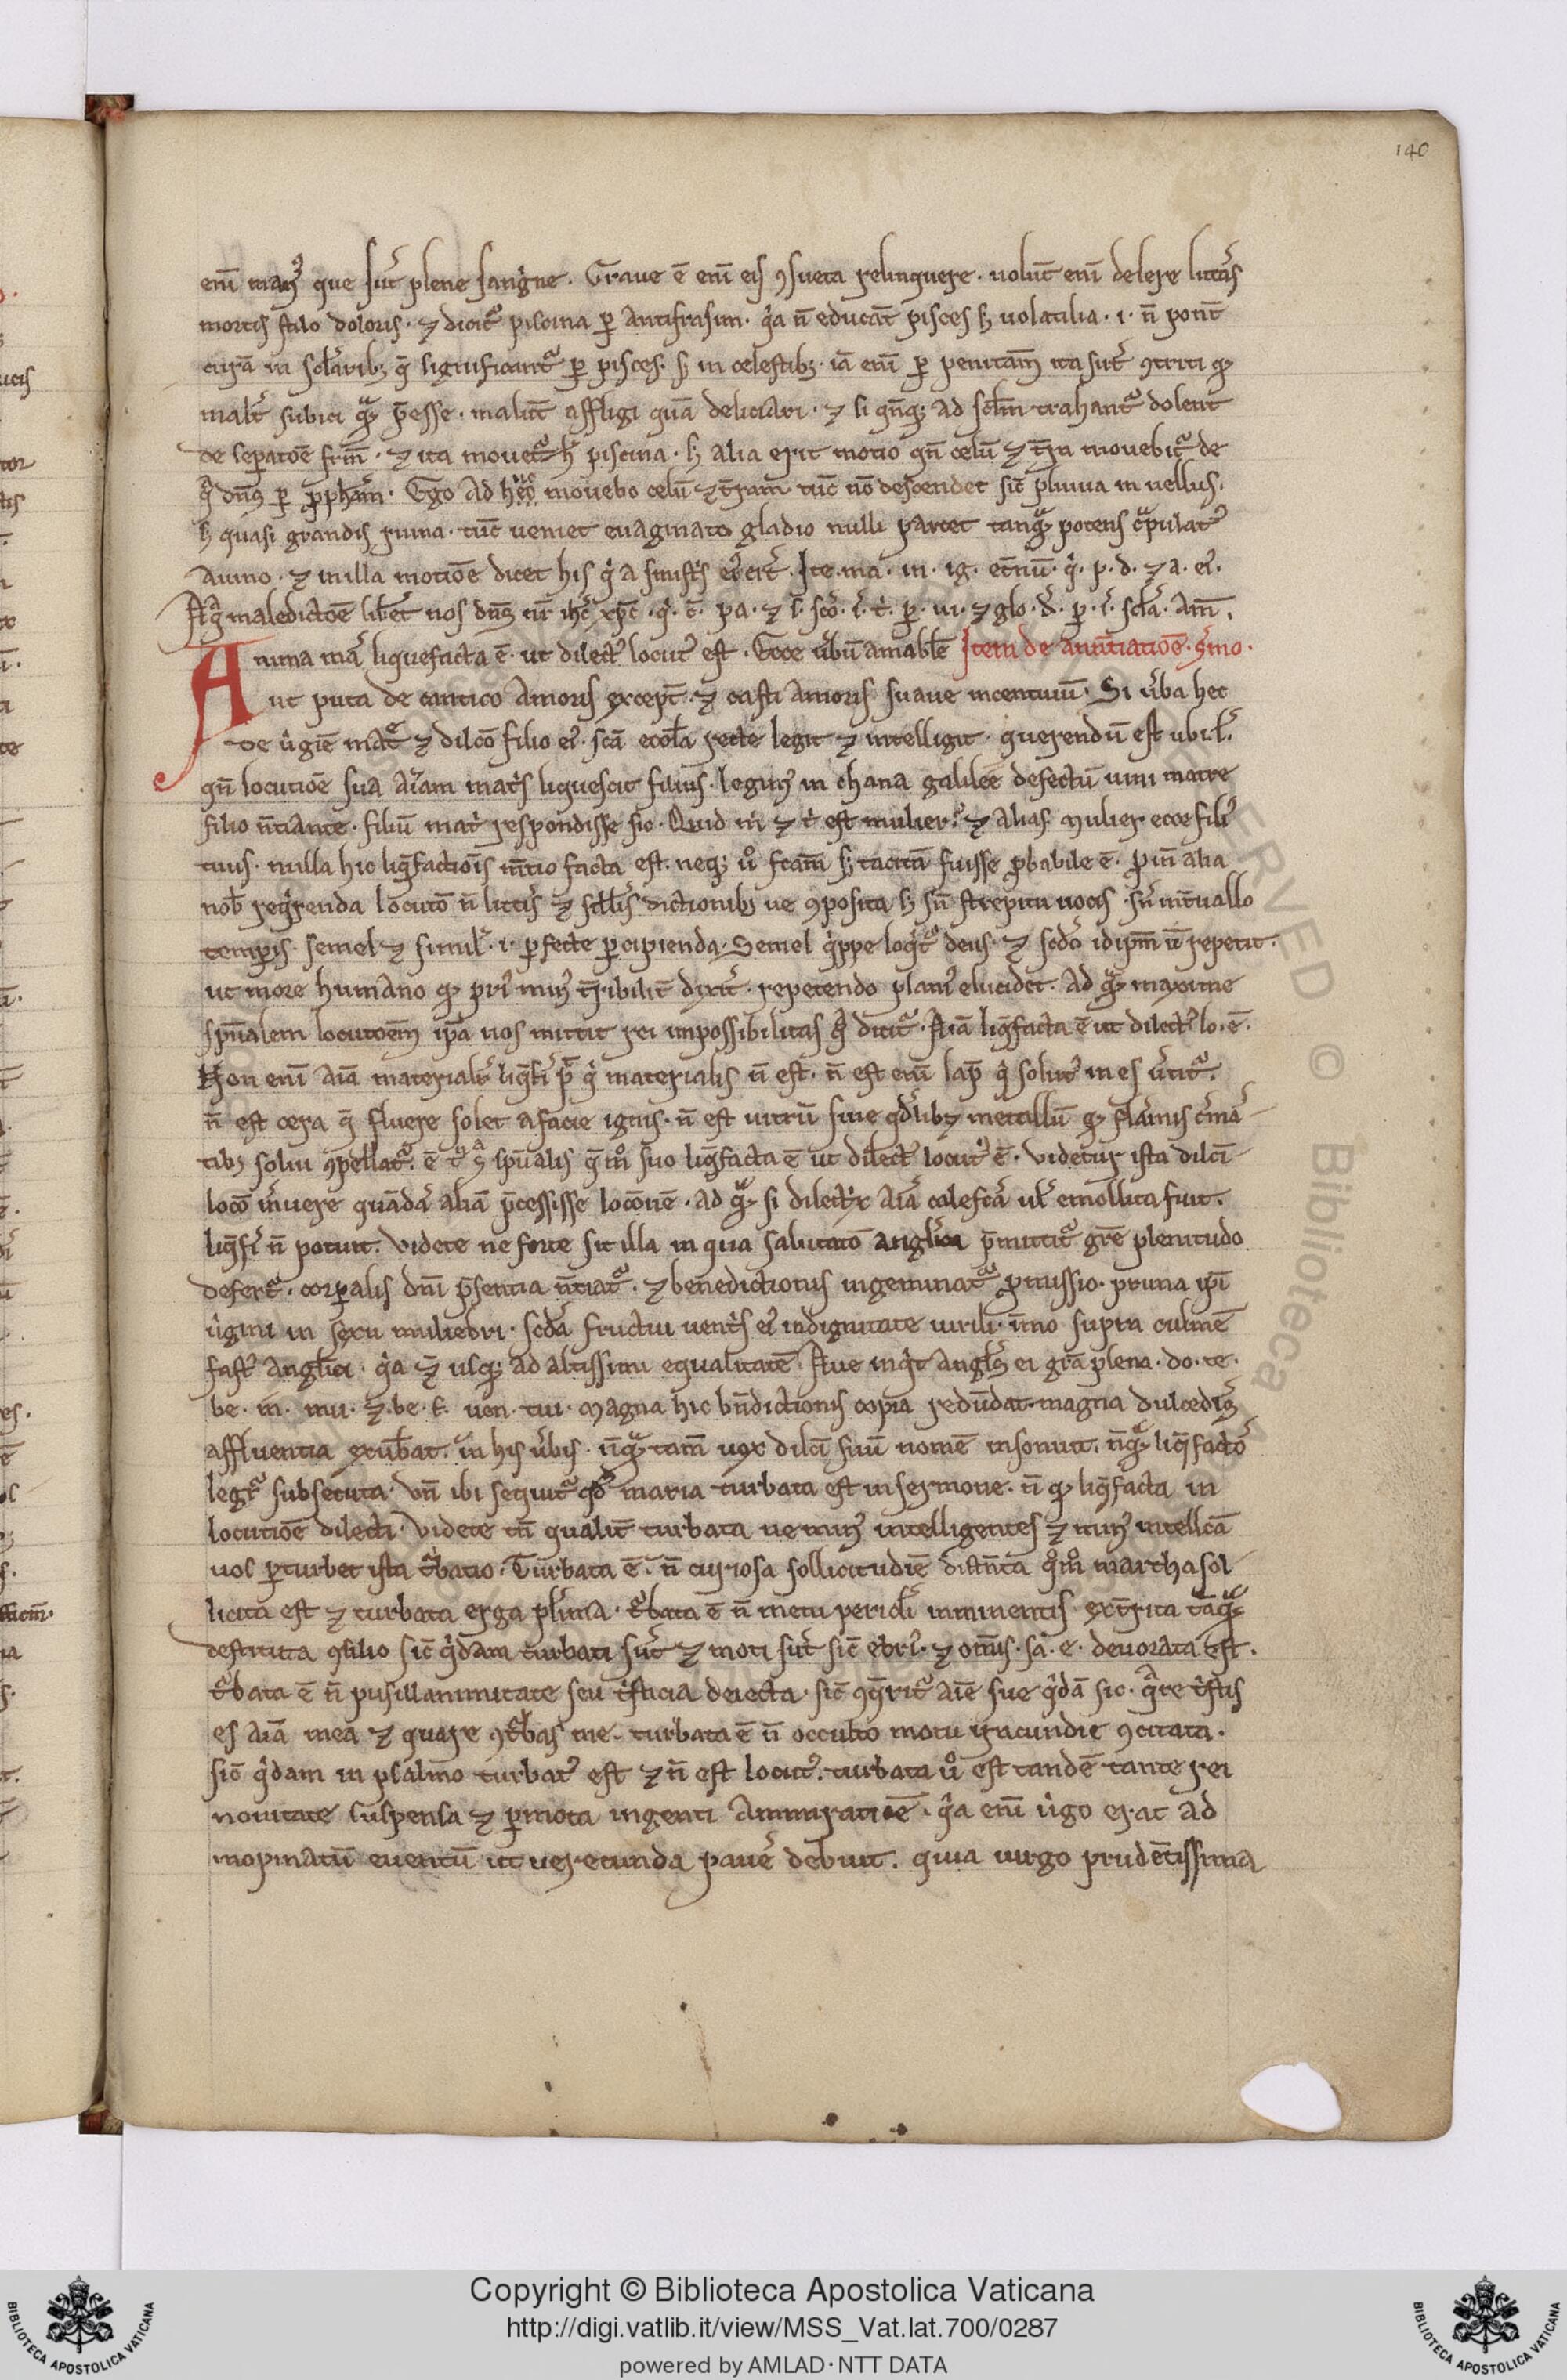 140
enī man᷒ que sūt plene sangͥne. Graue ē enī eis ꝯsueta relinquere. uolūt enī delere litt̾as
mortis stilo doloris. ⁊ dicit᷑ piscina ꝑ antifrasim. qͥa n̄ educāt pisces ꝫ uolatilia. i. n̄ ponūt
curā in scl̾aribꝫ q̄ significant᷑ ꝑ pisces. ꝫ in celestibꝫ. iā enī ꝑ penitām ita sūt ꝯtriti qꝫ
malūt subici qͣꝫ p̄esse. malūt affligi quā deliciari. ⁊ si qn̄qꝫ ad scl̄m trahant᷑ dolent
de sepatōe frm̄. ⁊ ita mouet᷑ h̄ piscina. ꝫ alia erit motio qn̄ celū ⁊ t̄ra mouebit᷑ de
qͣ dn̄s ꝑ ꝓpham̄. Ego ad huc mouebo celū ⁊ t̄ram tūc nō descendet sic̄ pluuia in uellus.
ꝫ quasi grandis ruina. tūc ueniet euaginato gladio nulli parcet tanqͣꝫ potens cͣpulat᷒
a uino. ⁊ in illa motiōe dicet his qͥ a sinist̾s ei᷒ erūt. Ite. ma. in. ig. et̄nū. qͥ. p. d. ⁊ a. ei᷒.
A qͣ maledictōe lib̄et nos dn̄s nr̄ ihc̄ xp̄c. qͥ. c̄. pa. ⁊ s̄. sc̄o. ī. t̄. ꝑ. ui. ⁊ glo. d̄. ꝑ. ī. scl̄a. Am̄.
Anima mā liquefacta ē. ut dilect᷒ locut᷒ est. Ecce ūbū amabile Item de annūtiatiōe. s̾mo.
ut puta de cantico amoris except̄. ⁊ casti amoris suaue incentiuū. Si ūba hec
de ūgine mat̄e ⁊ dilc̄o filio ei᷒. sc̄a eccl̄a recte legit ⁊ intelligit. querendū est ubi. l̄.
qn̄ locutiōe sua aīam mat̾s liquescit filius. legim᷒ in chana galilee defectū uini matre
filio nūtiante. filiū mat̾ respondisse sic. Quid mͥ ⁊ tͥ est mulier. ⁊ alias. Mulier ecce fili᷒
tuus. nulla hic liqͣfactiois m̄tio facta est. neqꝫ ūo fcam̄ ꝫ tacitā fuisse ꝓbabile ē. ꝓin̄ alia
nob̄ reqͥrenda locutō n̄ litt̾is ⁊ sill̄is dictionibꝫ ue ꝯposita ꝫ sn̄ strepitu uocis. sn̄ int̄uallo
temꝑis. semel ⁊ simul̄. i. ꝑfecte ꝑcipienda. Semel qͥppe loqͥt᷑ deus. ⁊ scd̄o idipm̄ n̄ repetit.
ut more humano qꝫ pri᷒ min᷒ t̄ribilit̄ dixit. repetendo plani᷒ elucidet. Ad qͣꝫ maxime
spūalem locutoēm ip̄a nos mittit rei impossibilitas qͣ dicit᷑. Aīa liqͣfacta ē ut dilect᷒ lo. ē.
Non enī aīa materialit̄ liqͣfi p̄t qͥ materialis n̄ est. n̄ est enī lapis qͥ solut᷒ in es ūtit᷑.
n̄ est cera q̄ fluere solet a facie ignis. n̄ est uitrū siue qd̾libꝫ metallū qꝫ flāmis c̄ma-
tibꝫ solui ꝯpellat᷑. ē tn̄ sͣ spūalis qͣi mͦ suo liqͣfacta ē ut dilect᷒ locut᷒ ē. Videtur ista dilc̄i-
locō īnuere quādā aliā p̄cessisse locōnē. ad qͣꝫ si dilect̾x aīa calefcā ul̄ emollita fuit.
liqͣfi n̄ potuit. Videte ne forte sit illa in qua salutatō anglīca p̄mittit᷑ gr̄e plenitudo
defert᷑. corꝑalis dn̄i p̄sentia nūtiat᷑. ⁊ benedictionis ingeminat᷑ ꝓmissio. pruna ip̄i
ūgini in sexu muliebri. scd̄a fructui uent̾s ei᷒ in dignitate uirili. īmo supra culmē
fast᷒ anglīci. qͥa ⁊ usqꝫ ad altissimi equalitatē. Aue inqͥt angl̄s ei gr̄a plena. do. te.
be. in. mu. ⁊. be. f. uen. tui. Magna hic bn̄dictionis copia redūdat. magna dulcedis
affluentia exub̄at. in his ūbis. nūqͣꝫ tam̄ uox dilc̄i siuū nomē insonuit. nūqͣꝫ liqͣfactō
legit᷑ subsecuta. Vn̄ ibi sequit᷑ qd̾ maria turbata est in sermone. n̄ qꝫ liqͣfacta in
locutiōe dilecti. Videte tn̄ qualit̄ turbata ne min᷒ intelligentes ⁊ min᷒ intellcā
uos ꝑturbet ista t᷒batio. Turbata ē. n̄ curiosa sollicitudīe distn̄ta qͦmͦ martha sol-
licita est ⁊ turbata erga pl̄ima. t᷒bata ē n̄ metu periculi imminentis ext̄rita tāqͣꝫ
destituta ꝯsilio sic̄ qͥdam turbati sūt ⁊ moti sūt sic̄ ebri᷒. ⁊ om̄is. sa. e. deuorata est.
t᷒bata ē n̄ pusillanimitate seu t̾stitia deiecta. sic̄ ꝯq̄rit᷑ aīe sue qͥdā sic. qͣre t̾stis
es aīa mea ⁊ quare ꝯt᷒bas me. turbata ē n̄ occulto motu iracundie ꝯcitata.
sic̄ qͥdam in psalmo turbat᷒ est ⁊ n̄ est locut᷒. turbata ūo est tandē tante rei
nouitate suspensa ⁊ ꝑmota ingenti ammiratiōe. qͥa enī ūgo erat ad
inopinatū euentū ut uerecunda pauē debuit. quia uirgo prudētissima
Copyright © Biblioteca Apostolica Vaticana
http://digi.vatlib.it/view/MSS_Vat.lat.700/0287
powered by AMLAD · NTT DATA